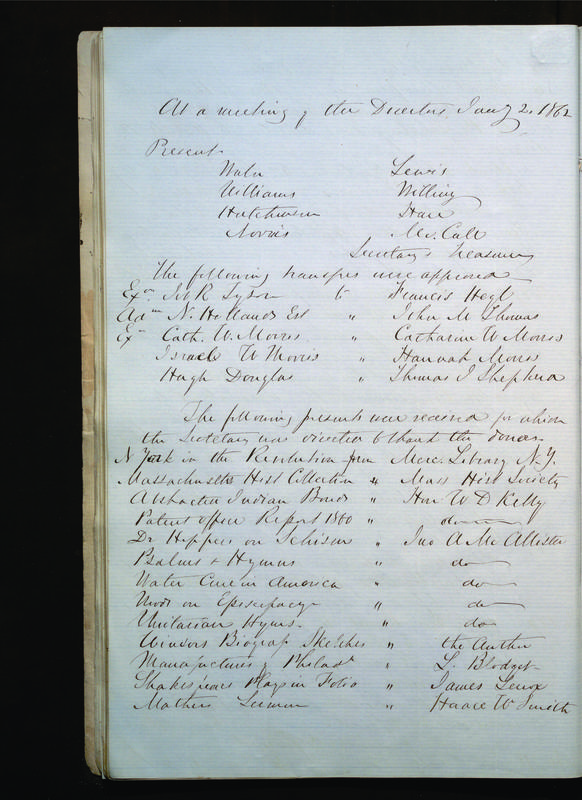 At a meeting of the Directors Jany 2, 1862
Present
Waln Lewis
Williams Willing
Hutchinson Hare
Norris Mc. Call
Secretary & Treasurer
The following transfers were approved
Exor. Job R Tyson to Francis Hegl
Adm N. Hollands Est " John M Thomas
Exr Cath. W. Morris " Catharine W Morris
Israel W Morris " Hannah Morris
Hugh Douglas " Thomas J Shepherd
The following presents were received for which
the Secretary was directed to thank the donors
N York in the Revolution from Merc. Library N.Y.
Massachusetts Hist Collection " Mass Hist Society
Abstracted Indian Bonds " Hon. W D Kelly
Patent office Report 1860 " do
Dr on Schism " Jno A McAllister
Psalms & Hymns " do
Water Cure in America " do
on Episcopacy " do
Unitarian Hyms. " do
Windsors Biograp Sketches " the Author
Manufactures of Philada " L. Blodget
Shakespeares Plays in Folio " James Lenox
Mathers Sermon " Horace W Smith